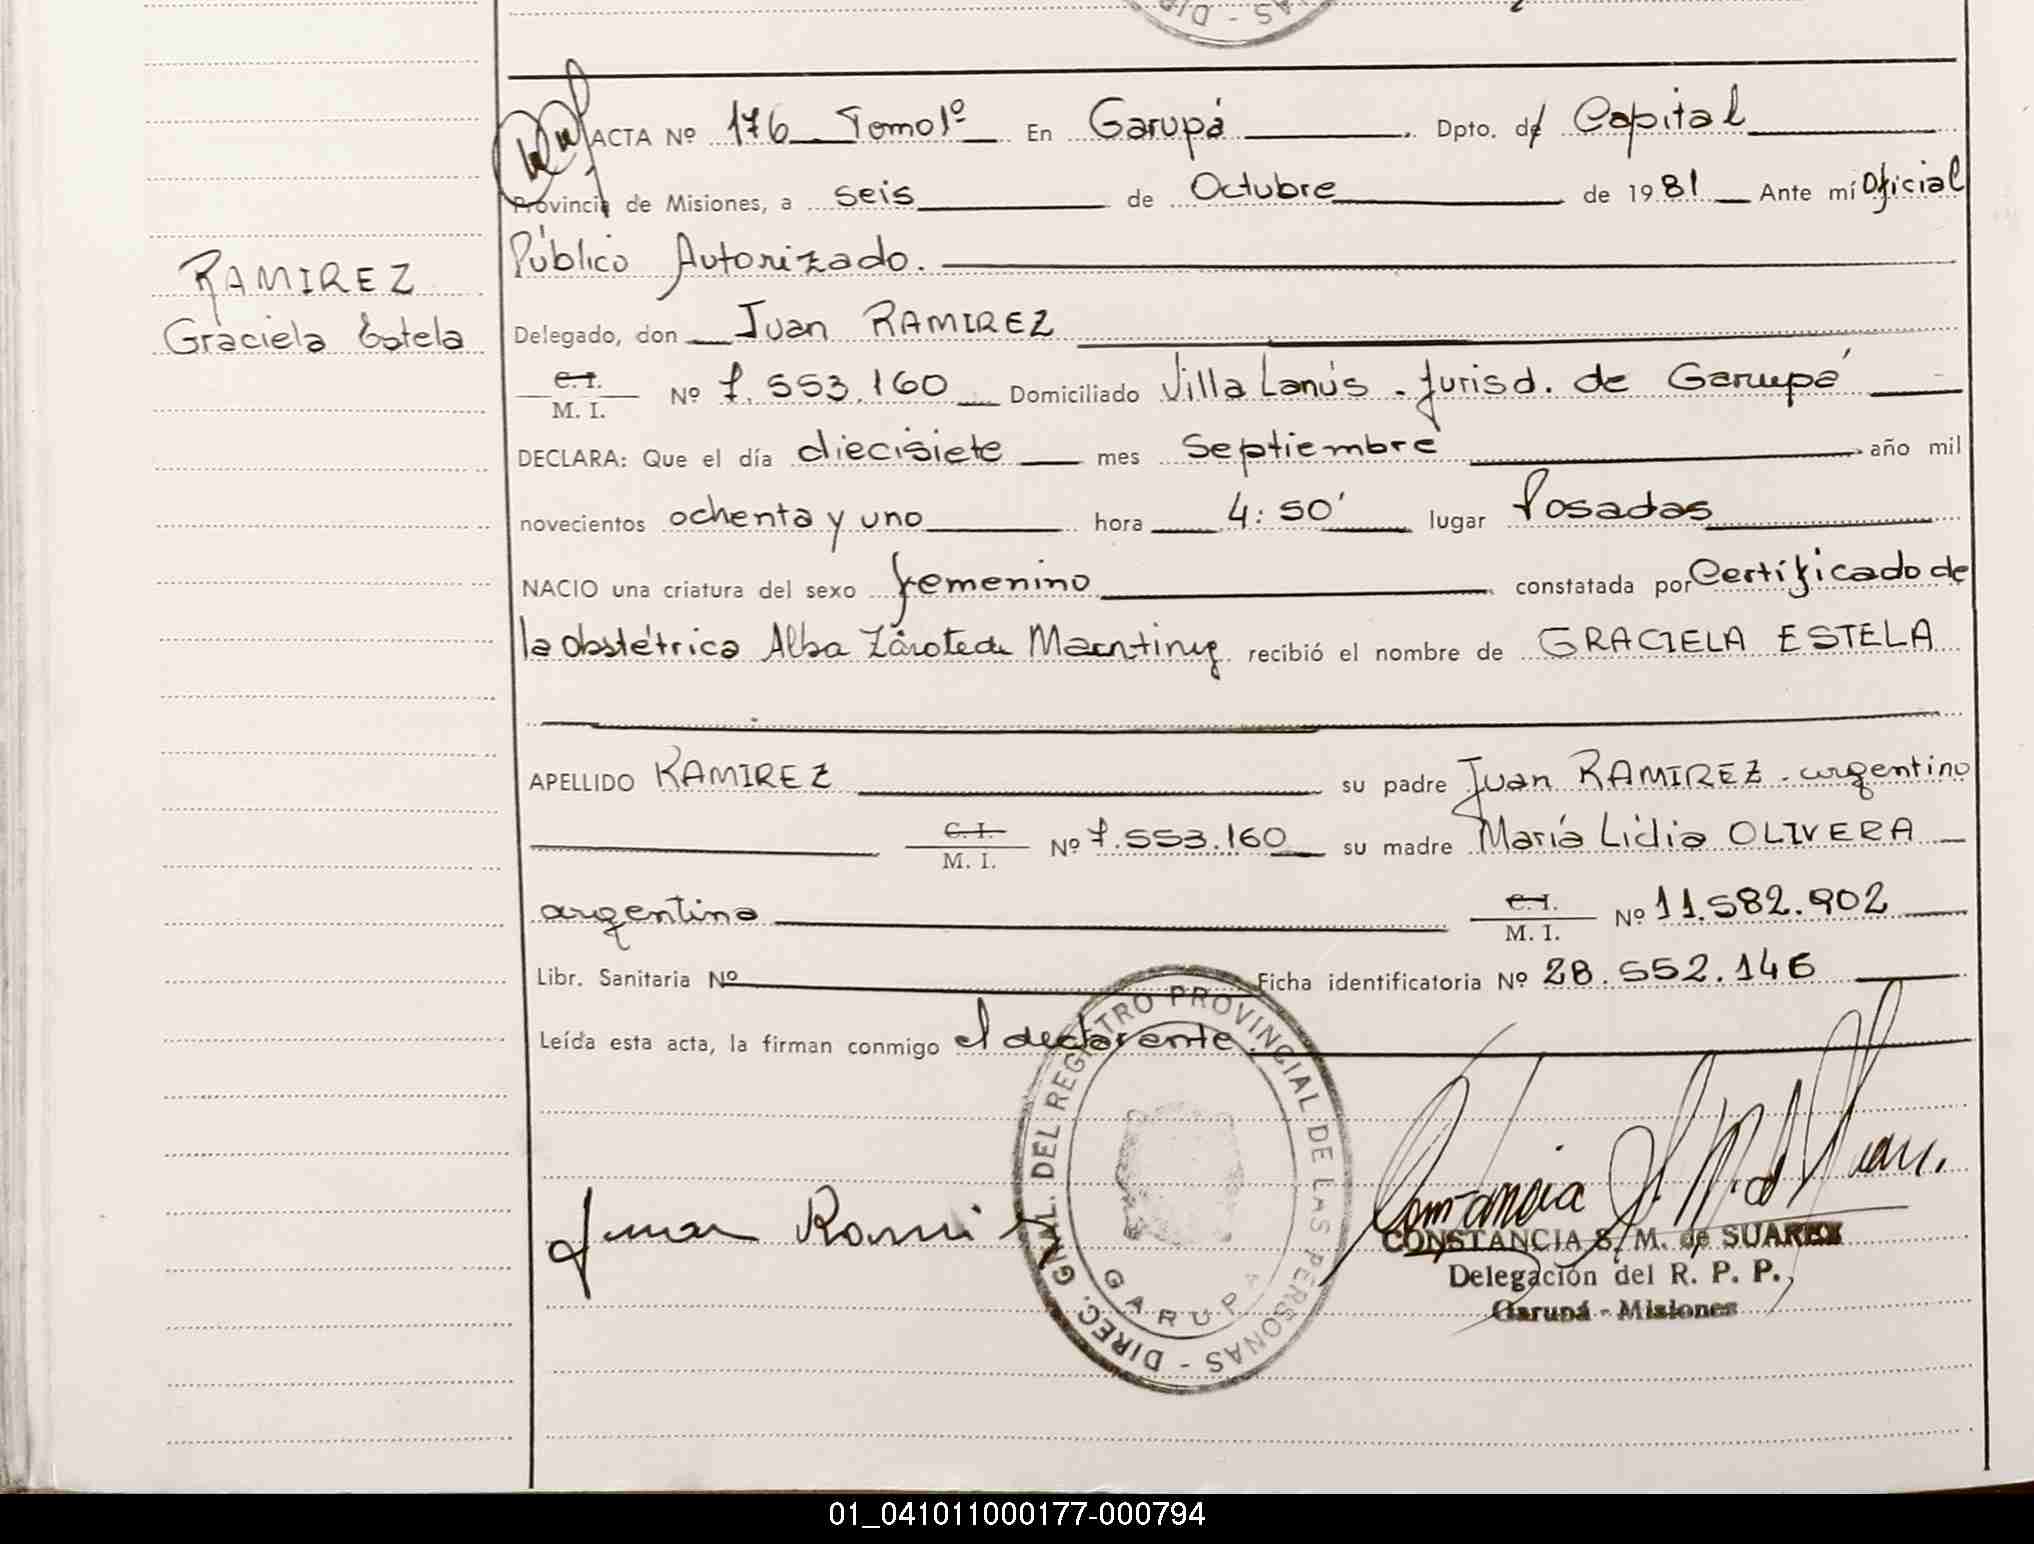 ACTA Nº 176 Tomo 1º En Garupá Dpto. de Capital
Provincia de Misiones, a seis de Octubre de 1981 Ante mí Oficial
Público Autorizado.
RAMIREZ
Graciela Estela
Delegado, don Juan RAMIREZ
C. I.
M. I. Nº 7.553.160 Domiciliado Villa Lanús - Jurisd. de Garupá
DECLARA: Que el día diecisiete mes Septiembre año mil
novecientos ochenta y uno hora 4:50' lugar Posadas
NACIO una criatura del sexo femenino constatada por Certificado de
la obstétrica Alba recibió el nombre de GRACIELA ESTELA
APELLIDO RAMIREZ su padre Juan RAMIREZ - argentino
C. I.
M. I. Nº 7.553.160 su madre María Lidia OLIVERA
argentina C. I.
M. I. Nº 11.582.902
Libr. Sanitaria Nº Ficha identificatoria Nº 28.552.146
Leída esta acta, la firman conmigo el declarante.
DIREC. GRAL. DEL REGISTRO PROVINCIAL DE LAS PERSONAS -
GARUPA
Juan Ramirez
Constancia
CONSTANCIA S. M. de SUAREZ
Delegación del R. P. P.,
Garupá - Misiones
01_041011000177-000794